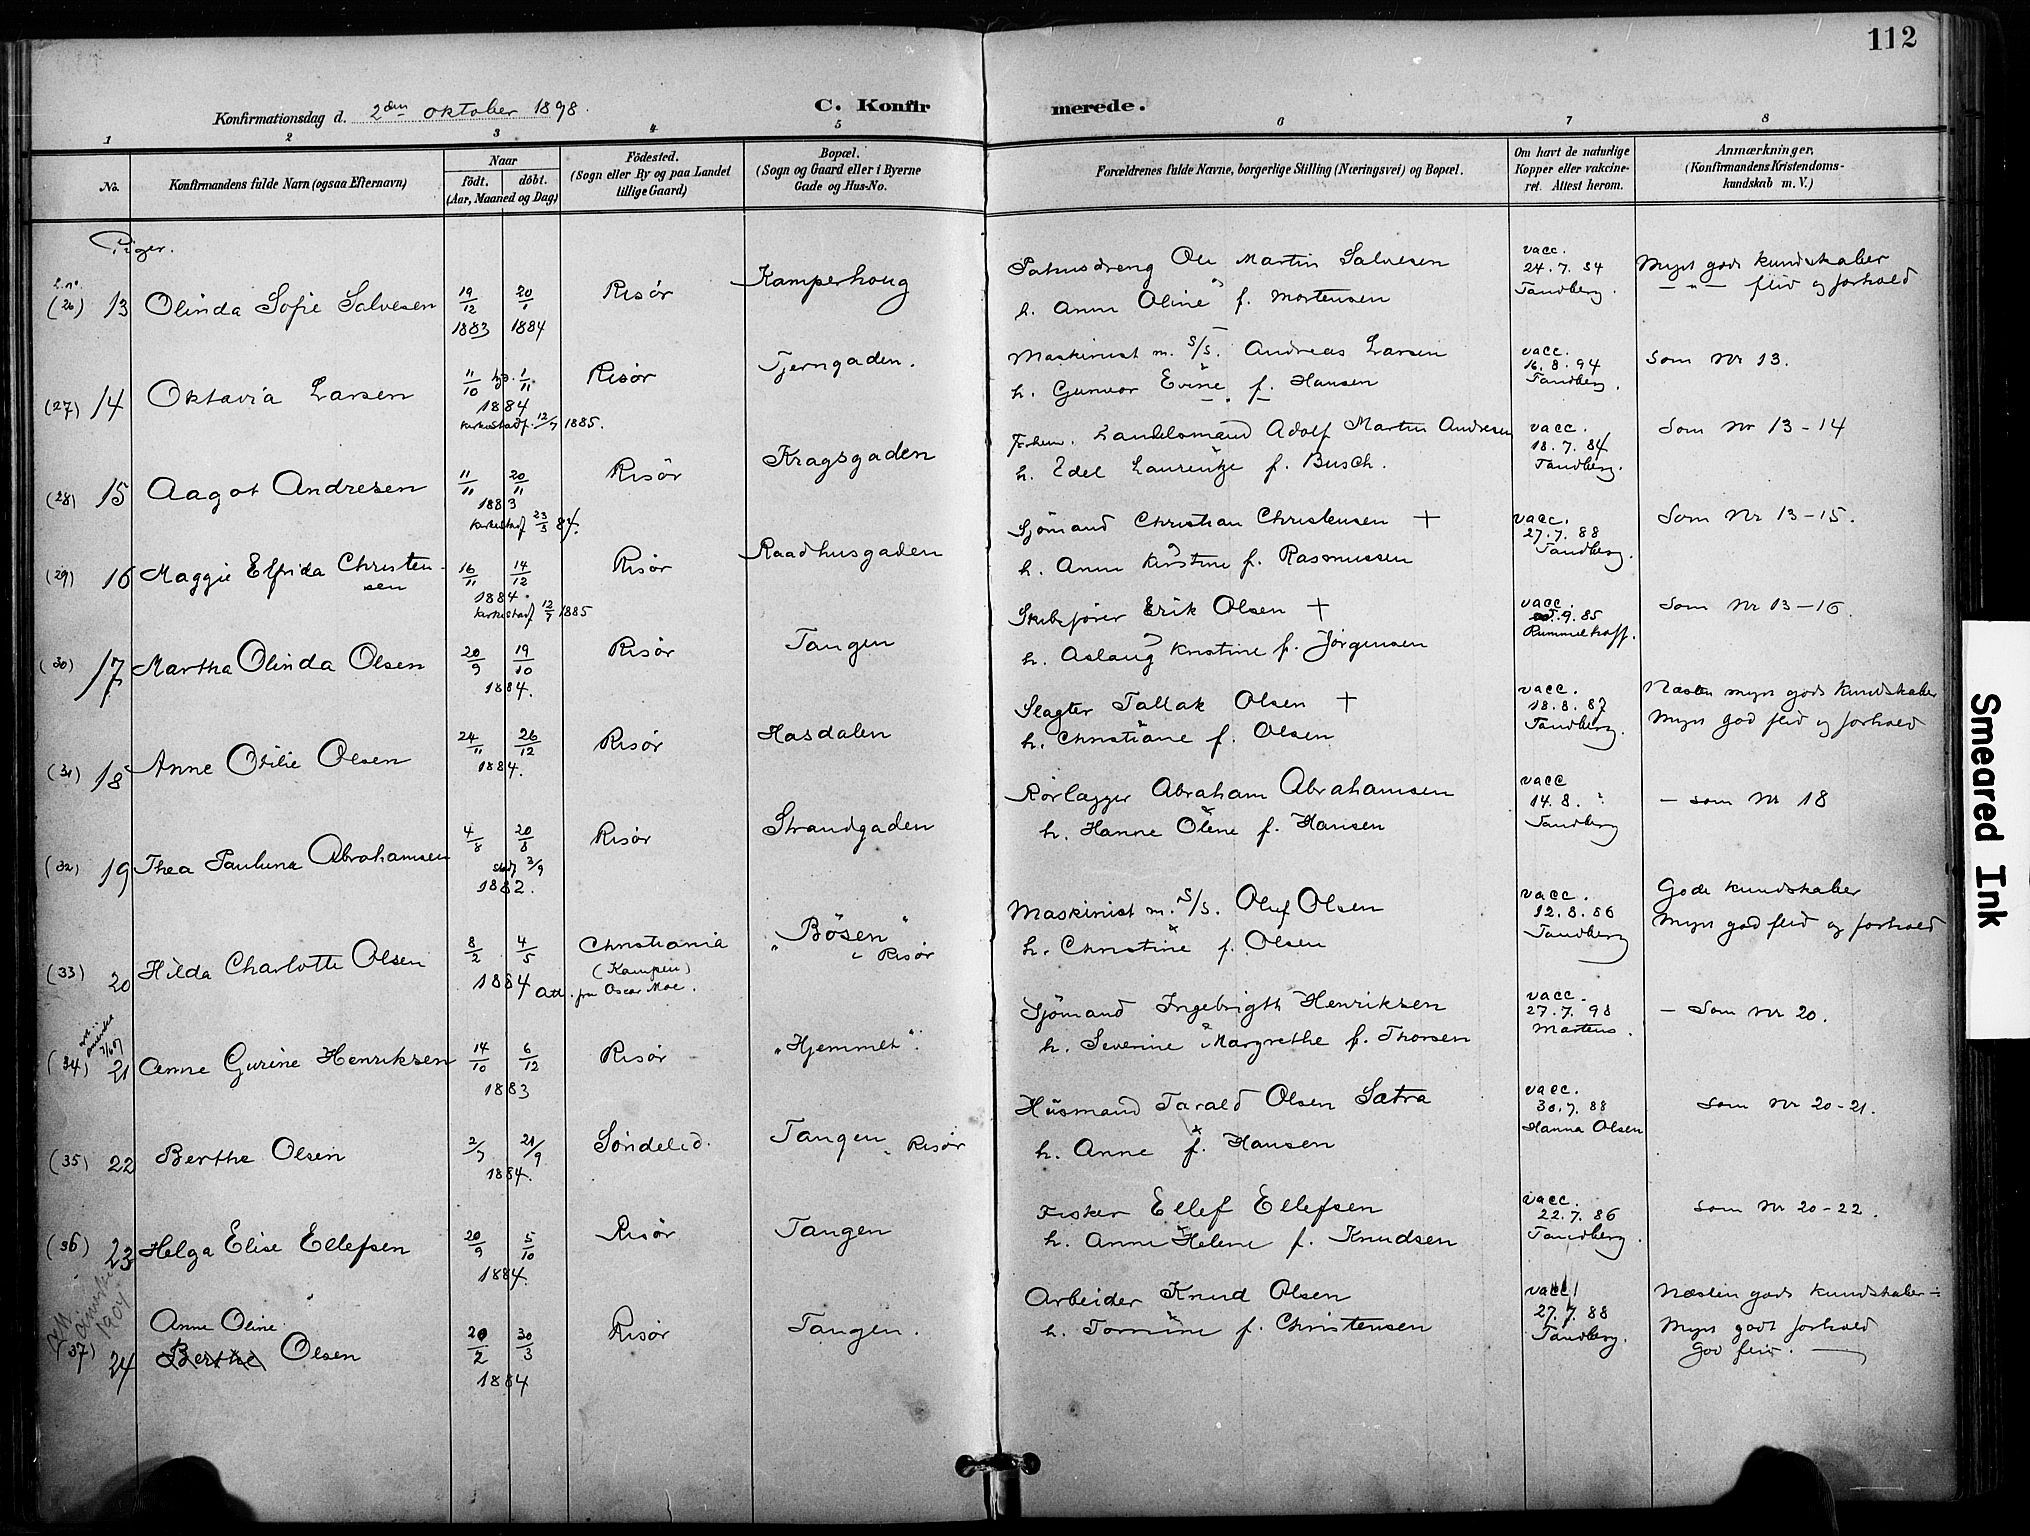 112
Konfirmationsdag d. 2den oktober 1898.
C. Konfirmerede.
1 2 3 4 5 6 7 8
No.
Konfirmandens fulde Navn (ogsaa Efternavn)
Naar
født. døbt.
(Aar, Maaned og Dag)
Fødested.
(Sogn eller By og paa Landet
tillige Gaard)
Bopæl.
(Sogn og Gaard eller i Byerne
Gade og Hus-No.
Forældrenes fulde Navne, borgerlige Stilling (Næringsvei) og Bopæl.
Om havt de naturlige
Kopper eller vakcine-
ret. Attest herom.
Anmærkninger,
(Konfirmandens Kristendoms-
kundskab m. V.)
Piger.
(26) 13 Olinda Sofie Salvesen 19/12 1883 20/1 1884 Risør Kamperhoug
Ole Martin Salvesen
h. Anne Oline f. Mortensen
vacc.
24.7.84
Tandberg.
Myet gode kundskaber
— " — flid og forhold
(27) 14 Oktavia Larsen 11/10 hjd. 1/11 1884 Risør Tjerngaden.
kirkestadf. 12/7 1885.
Maskinist m. S/S. Andreas Larsen
h. Gunvor Evine f. Hansen
vacc.
16.8.94
Tandberg.
Som Nr 13.
(28) 15 Aagot Andresen 11/11 20/11 1883 Risør Kragsgaden
kirkestadf 23/3 84.
Forhen. Handelsmand Adolf Martin Andresen
h. Edel Laurentze f. Busch.
vacc.
18.7.84
Tandberg.
Som Nr 13-14
(29) 16 Maggie Elfrida Christensen 16/11 14/12 1884. Risør Raadhusgaden
kirkestadf 12/7 1885
Sjømand Christian Christensen +
h. Anne Kirstine f. Rasmussen
vacc.
27.7.88
Tandberg.
Som Nr 13-15.
(30) 17 Martha Olinda Olsen 20/9 19/10 1884. Risør Tangen
Skibsfører Erik Olsen +
h. Aslaug Kristine f. Jørgensen
vacc.
9.85
Rummelhoff.
Som Nr 13-16.
(31) 18 Anne Otilie Olsen 24/11 26/12 1884. Risør Hasdalen
Slagter Tallak Olsen +
h. Christiane f. Olsen
vacc.
18.8.87
Tandberg.
Næsten myet gode kundskaber
Myet god flid og forhold
(32) 19 Thea Pauluna Abrahamsen 4/8 20/8 Risør Strandgaden
stadf 3/9
1882.
Rørlægger Abraham Abrahamsen
h. Hanne Olene f. Hansen
vacc
14.8. ?
Tandberg
— som Nr 18
(33) 20 Hilda Charlotte Olsen 8/2 4/5 1884 Christiania "Bøsen"
(Kampen) Risør
Att. fra Oscar Moe.
Maskinist m. S/S. Oluf Olsen
h. Christine f. Olsen
vacc.
12.8.86
Tandberg
Gode kundskaber
Myet god flid og forhold
(34) 21 Anne Gurine Henriksen 14/10 6/12 1883 Risør "Hjemmet".
Sjømand Ingebrigth Henriksen
h. Severine Margrethe f. Thorsen
vacc.
27.7.98
Martens.
— Som Nr 20.
(35) 22 Berthe Olsen 2/7 21/9 1884. Søndeled. Tangen Risør
Husmand Tarald Olsen Sætra
h. Anne f. Hansen
vacc.
30.7.88
Hanna Olsen
Som Nr 20-21.
(36) 23 Helga Elise Ellefsen 20/9 5/10 1884. Risør Tangen
Fisker Ellef Ellefsen
h. Anne Helene f. Knudsen
vacc.
22.7.86
Tandberg.
Som Nr 20-22.
1907
Anne Oline
(37) 24 Berthe Olsen 20/2 30/3 1884 Risør Tangen.
Arbeider Knud Olsen
h. Tomine f. Christensen
vacc
27.7.88
Tandberg.
Næsten gode kundskaber ÷
Myet godt forhold
God flid. —
Smeared Ink